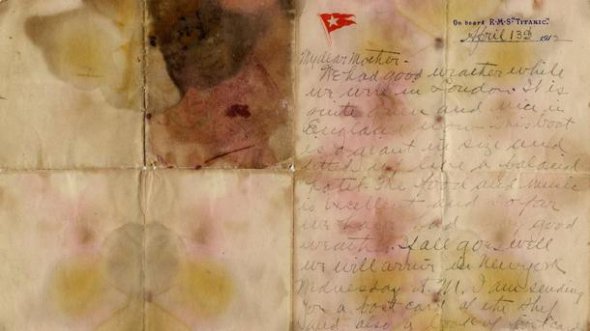 On board R·M·S "TITANIC".
April 13th 1912
My dear Mother -
We had good weather while
we were in London. It is
quite green and nice in
England now. This boat
is a giant in size and
fitted up like a palacial
hotel. The food and music
is excellent and so far
we have had very good
weather. If all goes well
we will arrive in New York
Wednesday A.M. I am sending
you a post card of the ship
and also a book of post cards